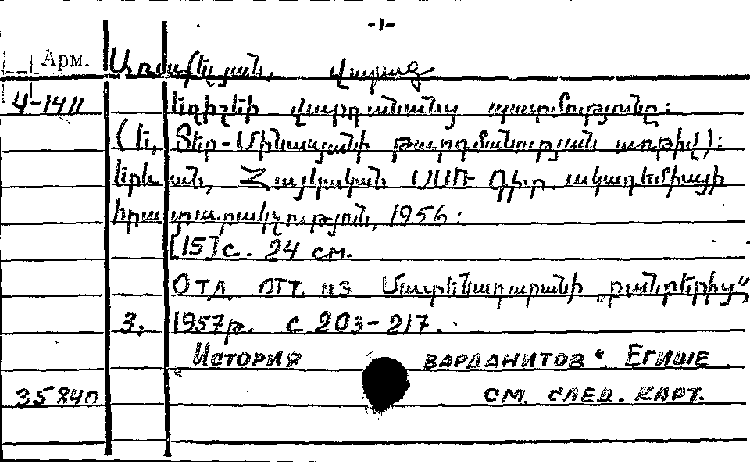 -1-
Арм. Առաքելյան, Վարագ
4-1411 Եղիշեի վարդանանց պատմությունը:
(Ե. Տեր-Մինասյանի թարգմանության առթիվ):
Երևան, Հայկական ՍՍՌ Գիտ. ակադեմիայի
հրատարակչություն, 1956:
[15] с. 24 см.
Отд. отт. из Մատենադարանի „բանբերից"
3, 1957թ. с 203-217.
"История варданитов" Егише
35840 см. след. карт.